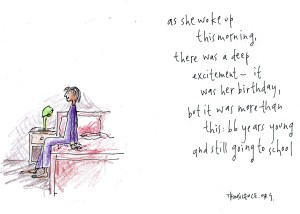 as she woke up
this morning,
there was a deep
excitement – it
was her birthday,
but it was more than
this: 66 years young
and still going to school